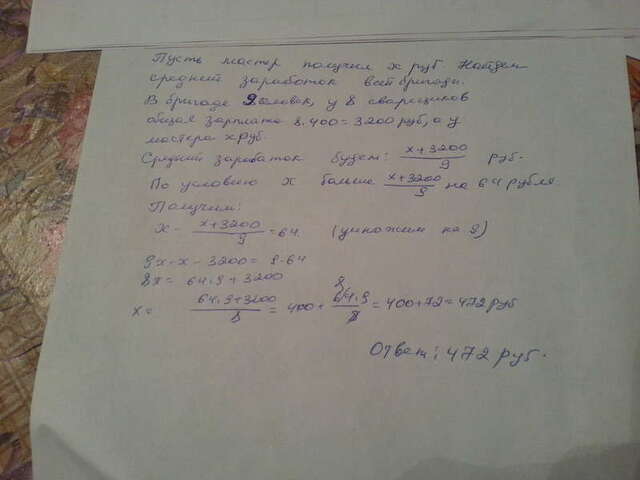 Пусть мастер получил x руб. Найдем
средний заработок всей бригады.
В бригаде 9 человек, у 8 сварщиков
общая зарплата 8·400=3200 руб, а у
мастера x руб.
Средний заработок будет: (x+3200)/9 руб.
По условию x больше (x+3200)/9 на 64 рубля.
Получим:
x - (x+3200)/9 = 64 (умножим на 9)
9x-x-3200= 9·64
8x= 64·9+3200
x= (64·9+3200)/8 = 400+ (64·9)/8 = 400+72=472 руб
Ответ: 472 руб.